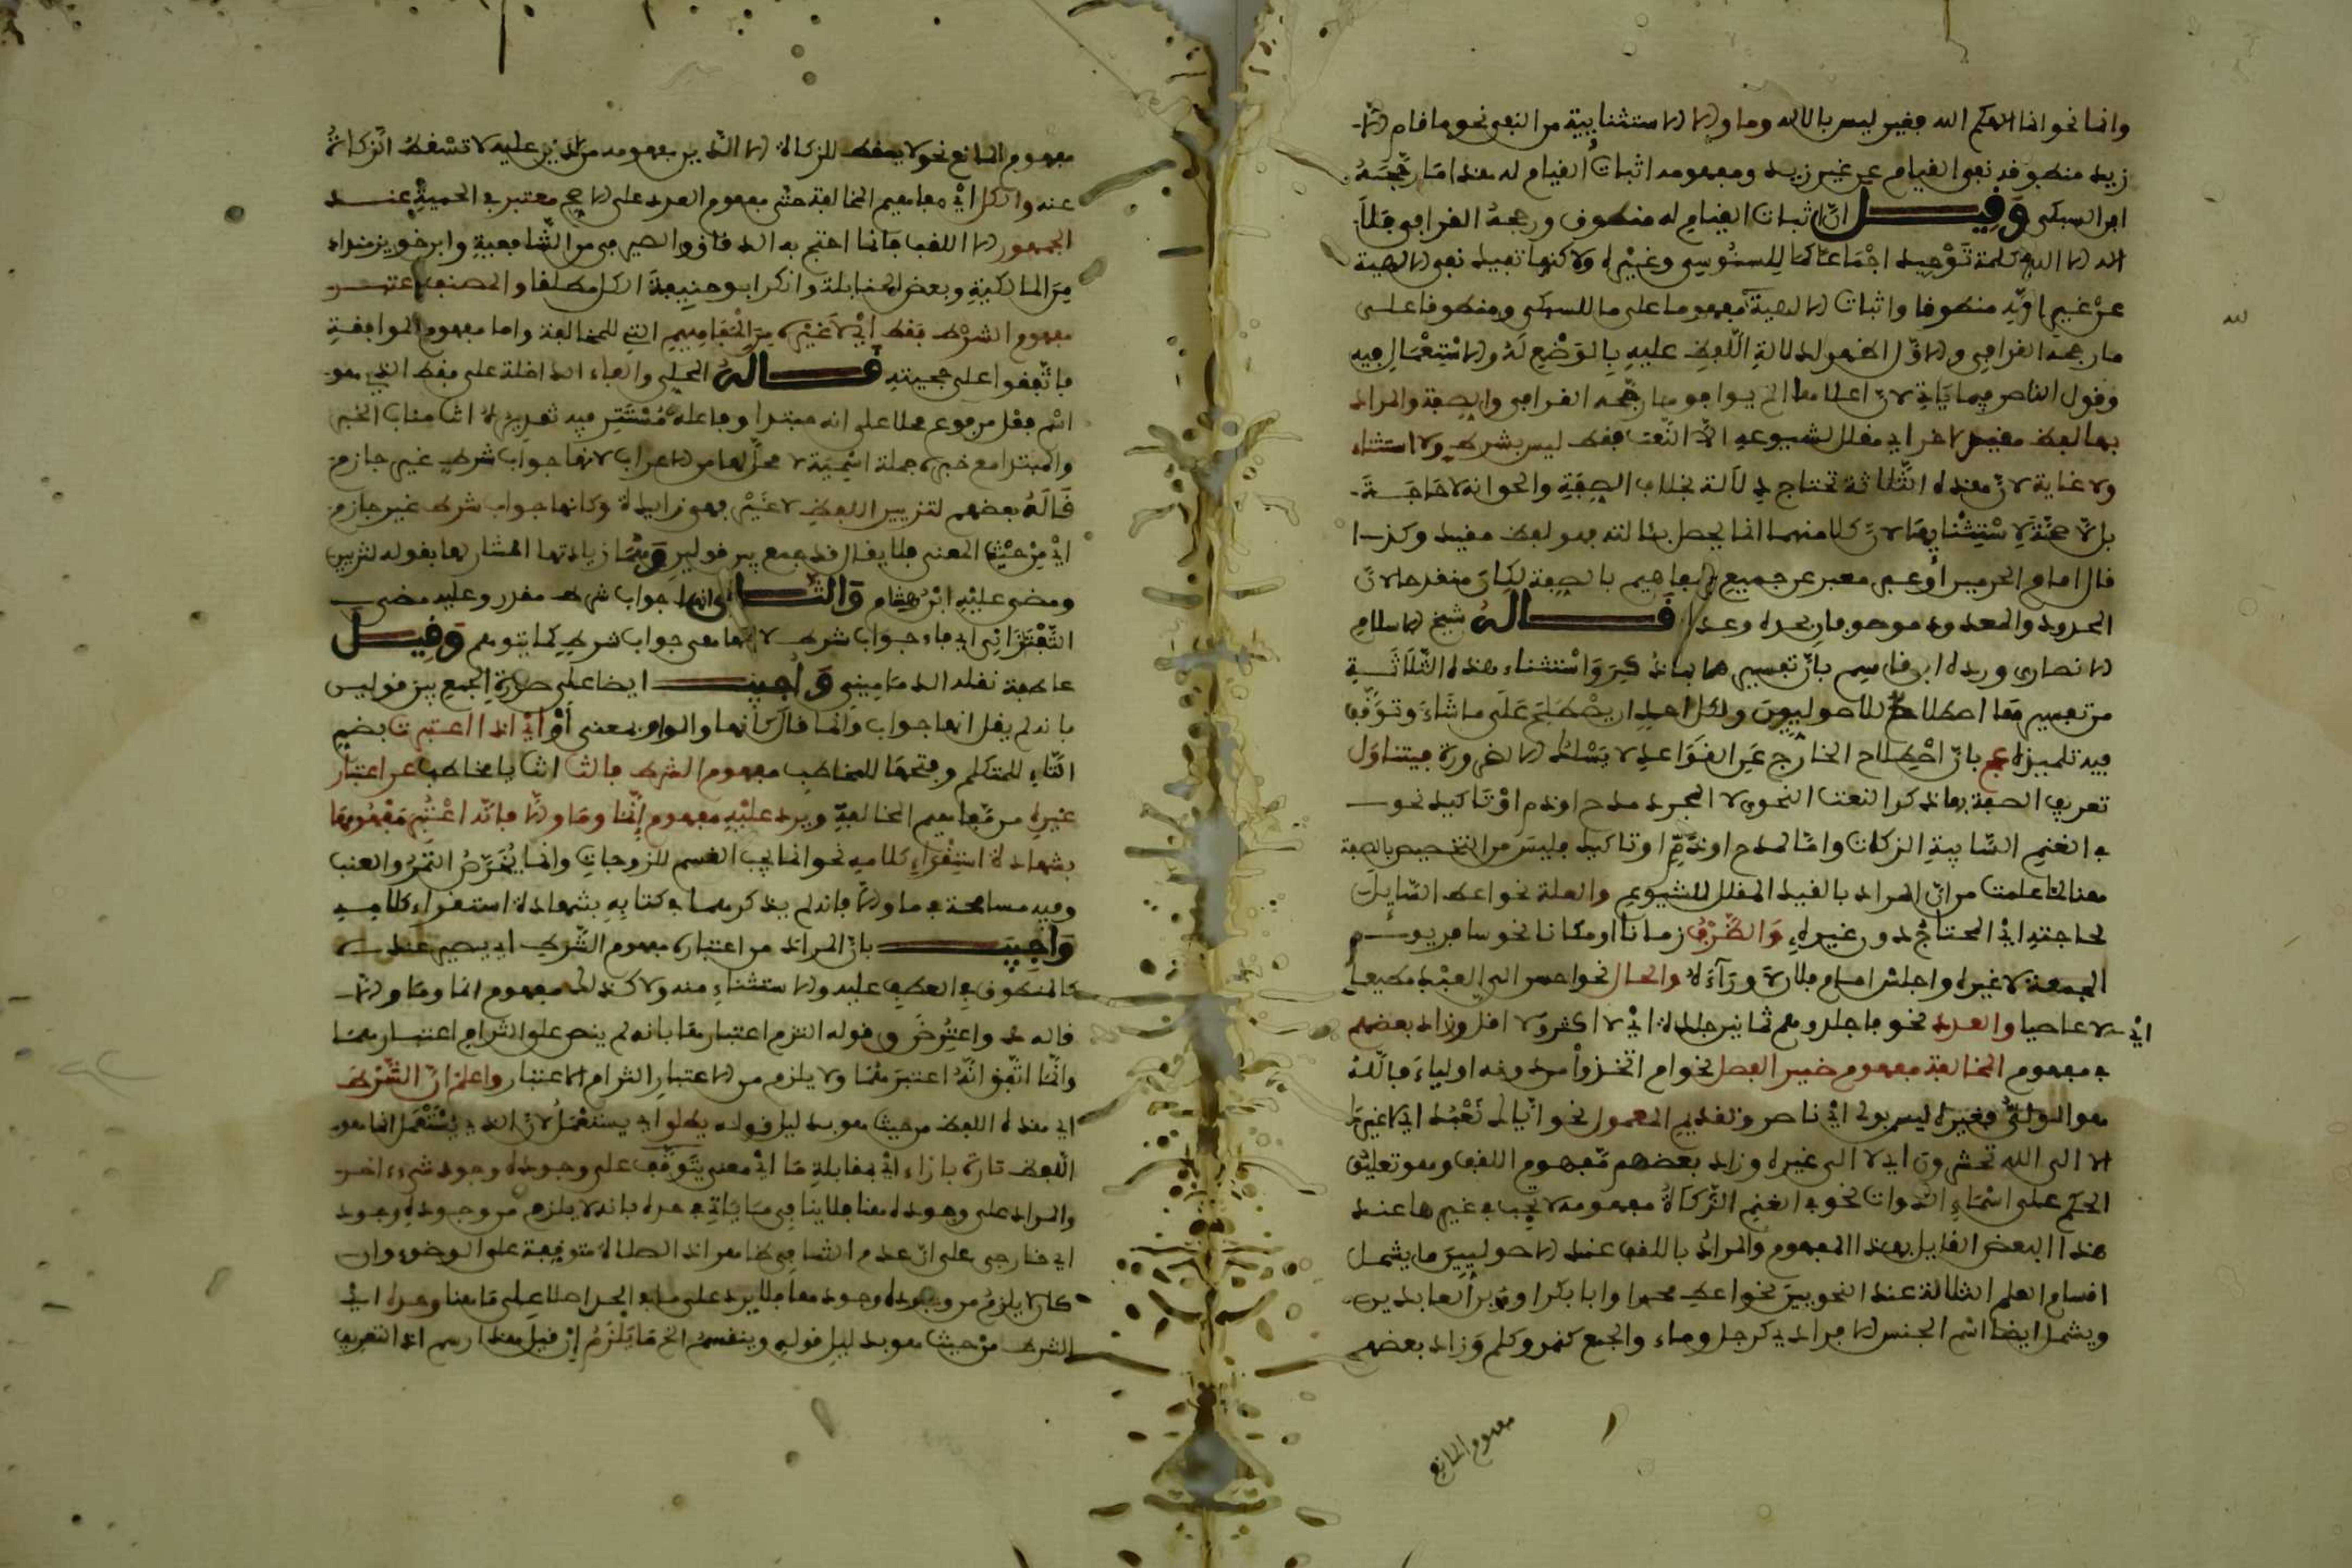 وانما نحو انما الاهكم الله فغير ليس بالاه وما والا الاستثنايية من النفي نحو ما قام الا
زيد منطوقه نفي القيام عن غير زيد ومفهومه اثبات القيام له هذا ما رجحه
ابن السبكي وقيل ان اثبات القيام له منطوق ورجحه القرافي
اله الا الله كلمة توحيد اجماعا كما للسنوسي وغيره ولاكنها تفيد نفي الالهية
عن غيره منطوقا واثبات الالهية مفهوما على ما للسبكي ومنطوقا على
ما رجحه القرافي والاول اظهر لدلالة اللفظ عليه بالوضع له والاستعمال فيه
وقول الناصر فيما ياتي لان اعلاها الخ يوافق ما رجحه القرافي والصفة والمراد
بها لفظ مقيد لاخر اي مقلل لشيوعه لا النعت فقط ليس بشرط ولا استثناء
ولا غاية لان هذه الثلاثة تحتاج لدلالة بخلاف الصفة والحق انه لا حاجة
بل لا صحة لاستثنايها لان كلا منها انما يحصل بدلالته فهو لفظ مفيد وكذا
قال امام الحرمين لو عبر معبر عن جميع المفاهيم بالصفة لكان منقدحا لان
المحدود والمعدود موصوفان بحده وعد قاله شيخ الاسلام
الانصاري ورده ابن قاسم بان تفسيرها بما ذكر واستثناء هذه الثلاثة
من تفسيرها اصطلاح للاصوليين ولكل احد ان يصطلح على ما شاء وتوقف
فيه تلميذه عج بان اصطلاح الخارج عن القواعد لا يسلم الا لضرورة فيتناول
تعريف الصفة بما ذكر النعت النحوي لا لمجرد مدح او ذم او تاكيد نحو
في الغنم السايمة الزكات واما لمدح او ذم او تاكيد فليس من التخصيص بالصفة
هنا لما علمت من ان المراد بالقيد المقلل للشيوع والعلة نحو اعط السايل
لحاجته اي المحتاج دون غيره والظرف زمانا او مكانا نحو سافر يوم
الجمعة لا غيره واجلس امام فلان لا وراءه والحال نحو احسن الى العبد مطيعا
اي لا عاصيا والعدد نحو فاجلدوهم ثمانين جلدة اي لا اكثر ولا اقل وزاد بعضهم
في مفهوم المخالفة مفهوم ضمير الفصل نحو ام اتخذوا من دونه اولياء فالله
هو الولي فغيره ليس بولي اي ناصر وتقديم المعمول نحو اياك نعبد اي لا غيرك
لا الى الله تحشرون اي لا الى غيره وزاد بعضهم مفهوم اللقب وهو تعليق
الحكم على اسماء الذوات نحو في الغنم الزكاة مفهومه لا تجب في غيرها عند
هذا البعض القايل بهذا المفهوم والمراد باللقب عند الاصوليين ما يشمل
اقسام العلم الثلاثة عند النحويين نحو اعط محمدا وابا بكر او زين العابدين
ويشمل ايضا اسم الجنس الافرادي كرجل وماء والجمع كتمر وكلم وزاد بعضهم
مفهوم المانع
مفهوم المانع نحو لا يسقط للزكاة الا الدين مفهومه من لا دين عليه لا تسقط الزكاة
عنه والكل اي مفاهيم المخالفة حتى مفهوم العدد على الاصح معتبر في الحجية عند
الجمهور الا اللقب فانما احتج به الدقاق والصيرفي من الشافعية وابن خويز منداد
من المالكية وبعض الحنابلة وانكر ابو حنيفة الكل مطلقا والمصنف اعتبر
مفهوم الشرط فقط اي لا غيره من المفاهيم التي للمخالفة واما مفهوم الموافقة
فاتفقوا على حجيته قاله المحلي والفاء الداخلة على فقط التي هو
اسم فعل مرفوع محلا على انه مبتدا وفاعله مستتر فيه تقديره انت مناب الخبر
والمبتدا مع خبره جملة اسمية لا محل لها من الاعراب لانها جواب شرط غير جازم
قاله بعضهم لتزيين اللفظ لا غير فهو زايدة وكانها جواب شرط غير جازم
اي من حيث المعنى فلا يقال قد جمع بين قولين وممن زيادتها المشار لها بقوله لتزيين
ومضى عليه ابن هشام والثاني انها جواب شرط مقدر وعليه مضى
التفتازاني اي فاء جواب شرط لا انها هي جواب شرط كما يتوهم وقيل
عاطفة نقله الدماميني واجيب ايضا على صورة الجمع بين قولين
بانه لم يقل انها جواب وانما قال كانها والواو بمعنى او اي اذا اعتبرت بضم
التاء للمتكلم وفتحها للمخاطب مفهوم الشرط فالت انت يا مخاطب عن اعتبار
غيره من مفاهيم المخالفة ويرد عليه مفهوم انما وما والا فانه اعتبر مفهومها
بشهادة استقراء كلامه نحو انما يجب القسم للزوجات وانما يخرص التمر والعنب
وفيه مسامحة في ما والا فانه لم يذكرهما في كتابه بشهادة استقراء كلامه
واجيب بان المراد من اعتباره مفهوم الشرط اي يصير عنده
كالمنطوق في العطف عليه والاستثناء منه ولا كذلك مفهوم انما وما والا
قاله واعترض وقوله التزم اعتبارها بانه لم ينص على التزام اعتبارهما
وانما اتفق انه اعتبرهما ولا يلزم من الاعتبار التزام الاعتبار واعلم ان الشرط
اي هذه اللفظ من حيث هو بدليل قوله يطلق اي يستعمل لان الذي يستعمل انما هو
اللفظ تارة بازاء اي مقابلة ما اي معنى يتوقف على وجوده وجود شيء اخر
والمراد على وجوده هنا فلا ينافي ما ياتي في حده بانه لا يلزم من وجوده وجود
اي خارجي على ان عدم التنافي ظاهر اذ الصلاة متوقفة على الوضوء وان
كان لا يلزم من وجوده وجودها فلا يرد على ما في الحد اصلا على ما هنا وحده اي
الشرط من حيث هو بدليل قوله وينقسم الخ ما يلزم ان قيل هذا رسم اذ التعريف